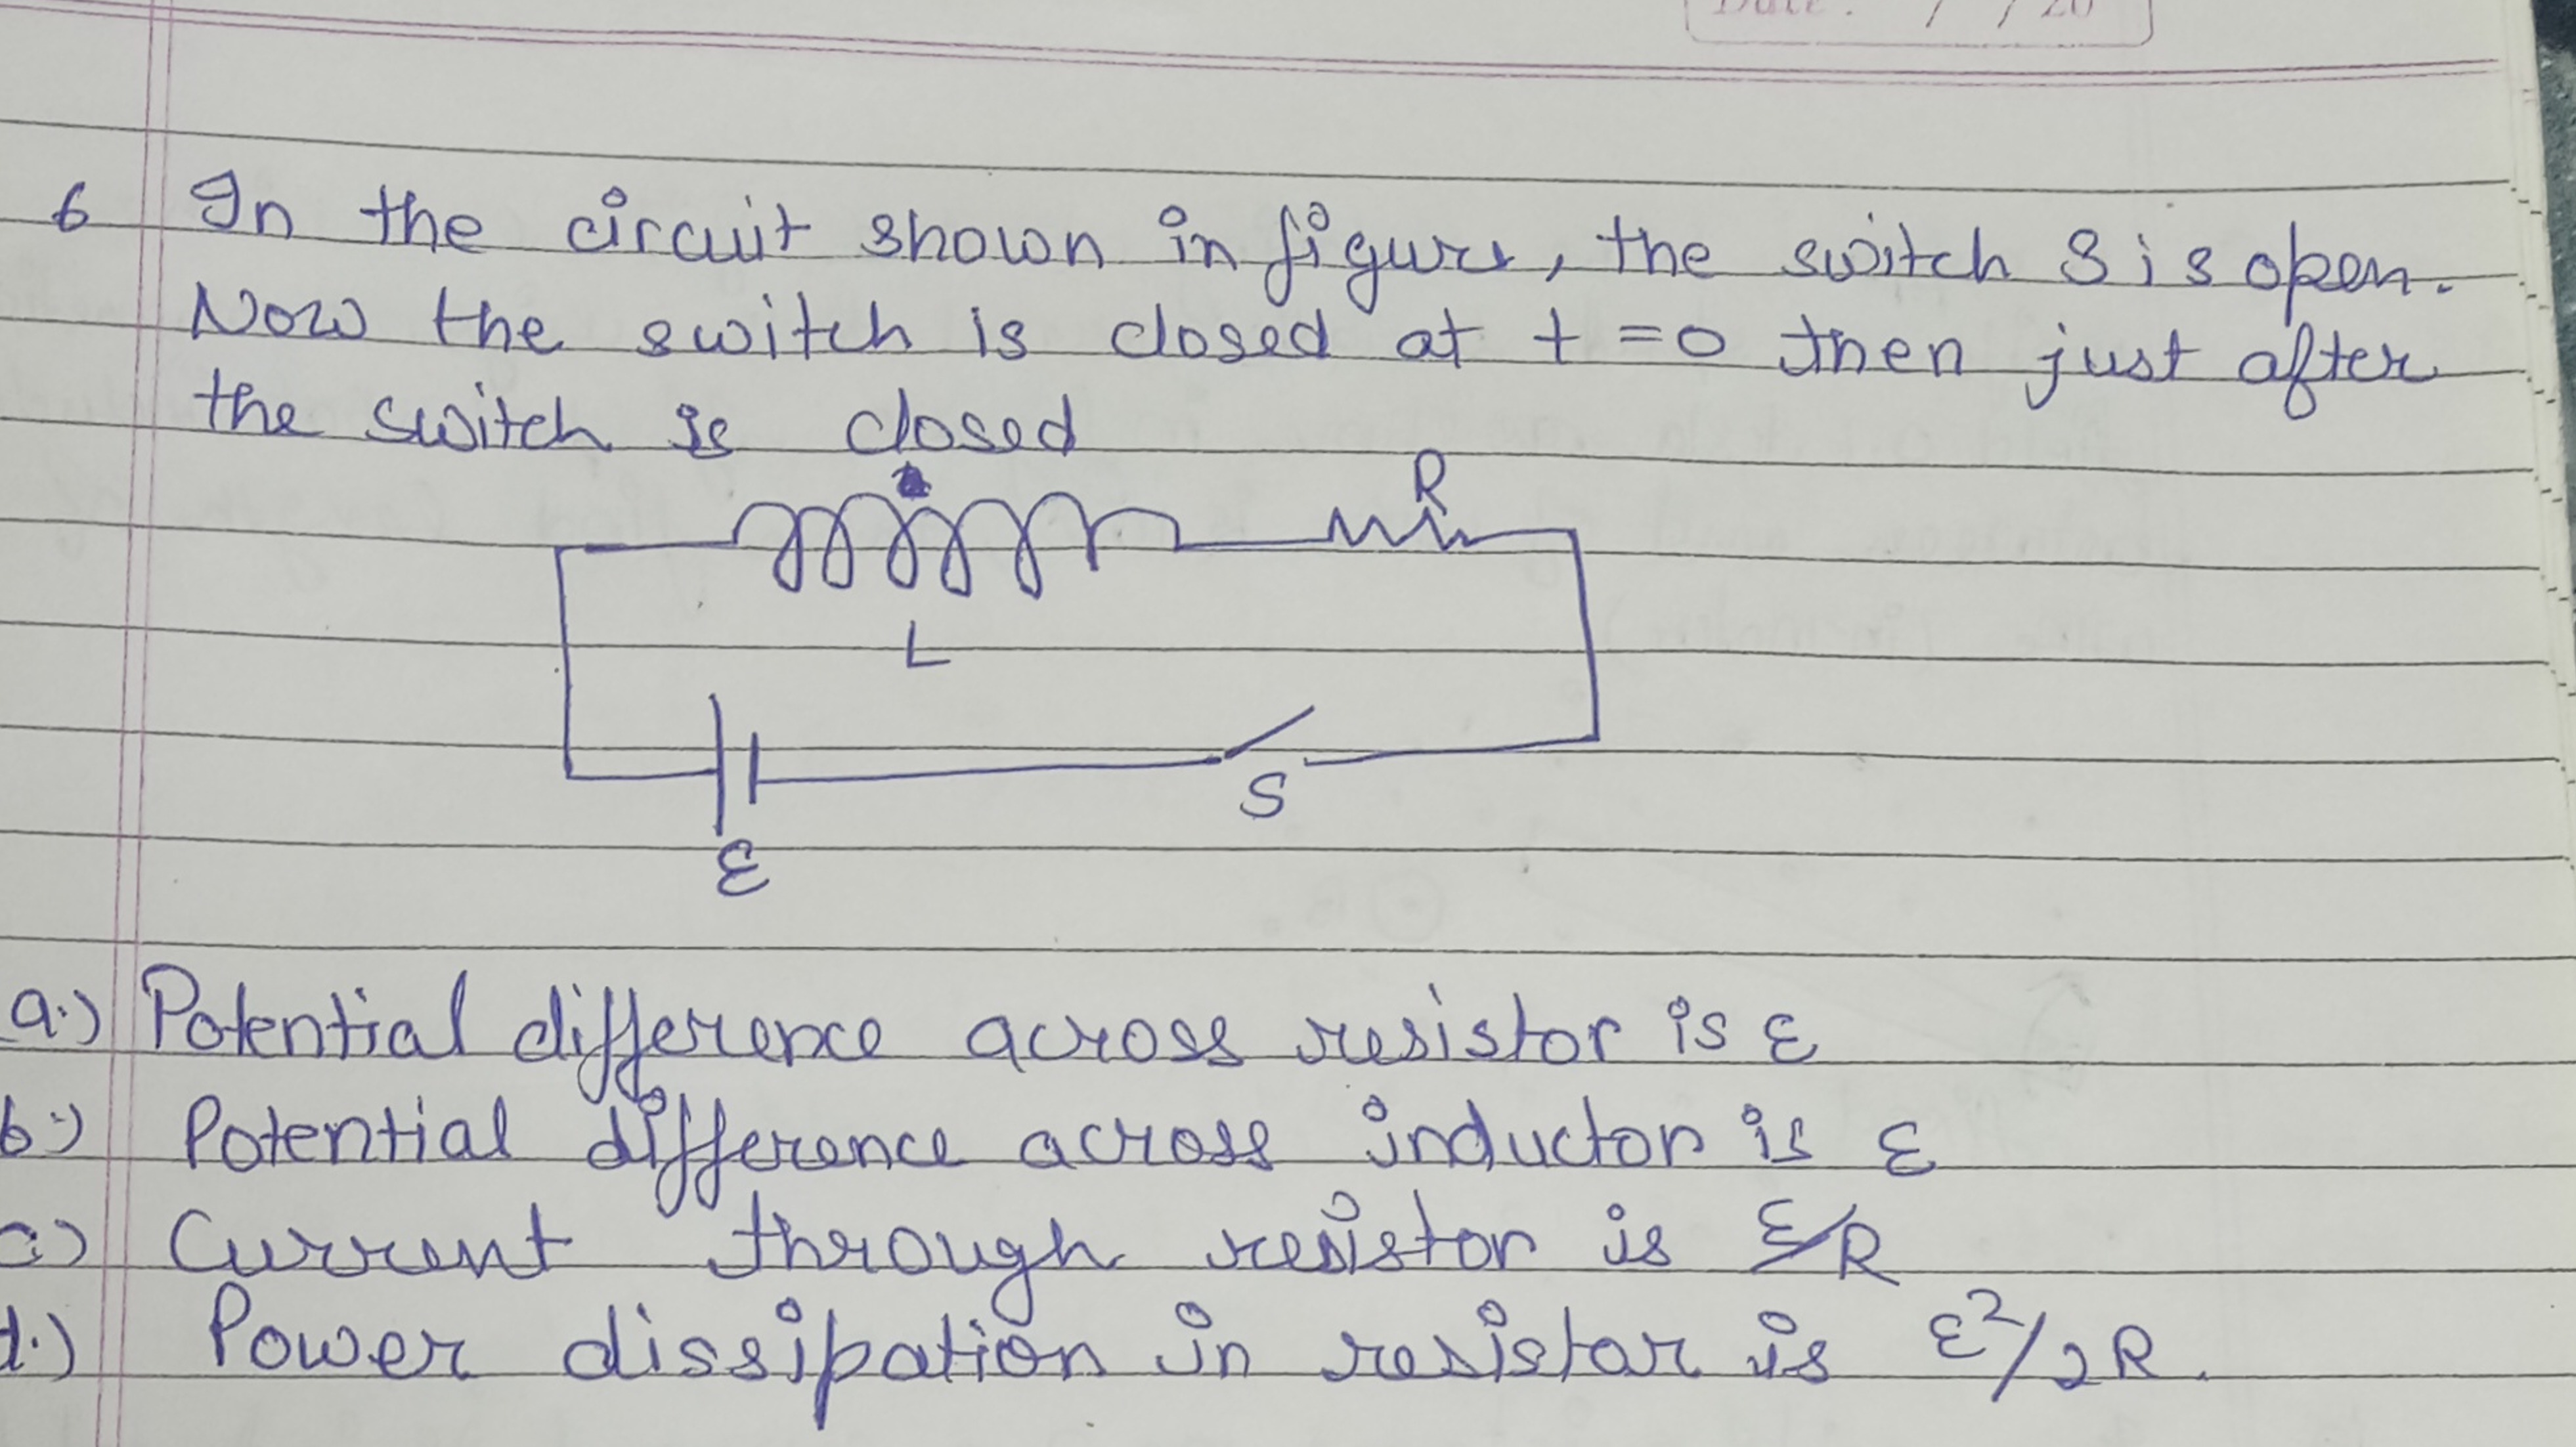 Date: / /20
6 In the circuit shown in figure, the switch S is open.
Now the switch is closed at t=0 then just after
the switch is closed
R
L
S
ε
a.) Potential difference across resistor is ε
b.) Potential difference across inductor is ε
c) Current through resistor is ε/R
d.) Power dissipation in resistor is ε²/2R.